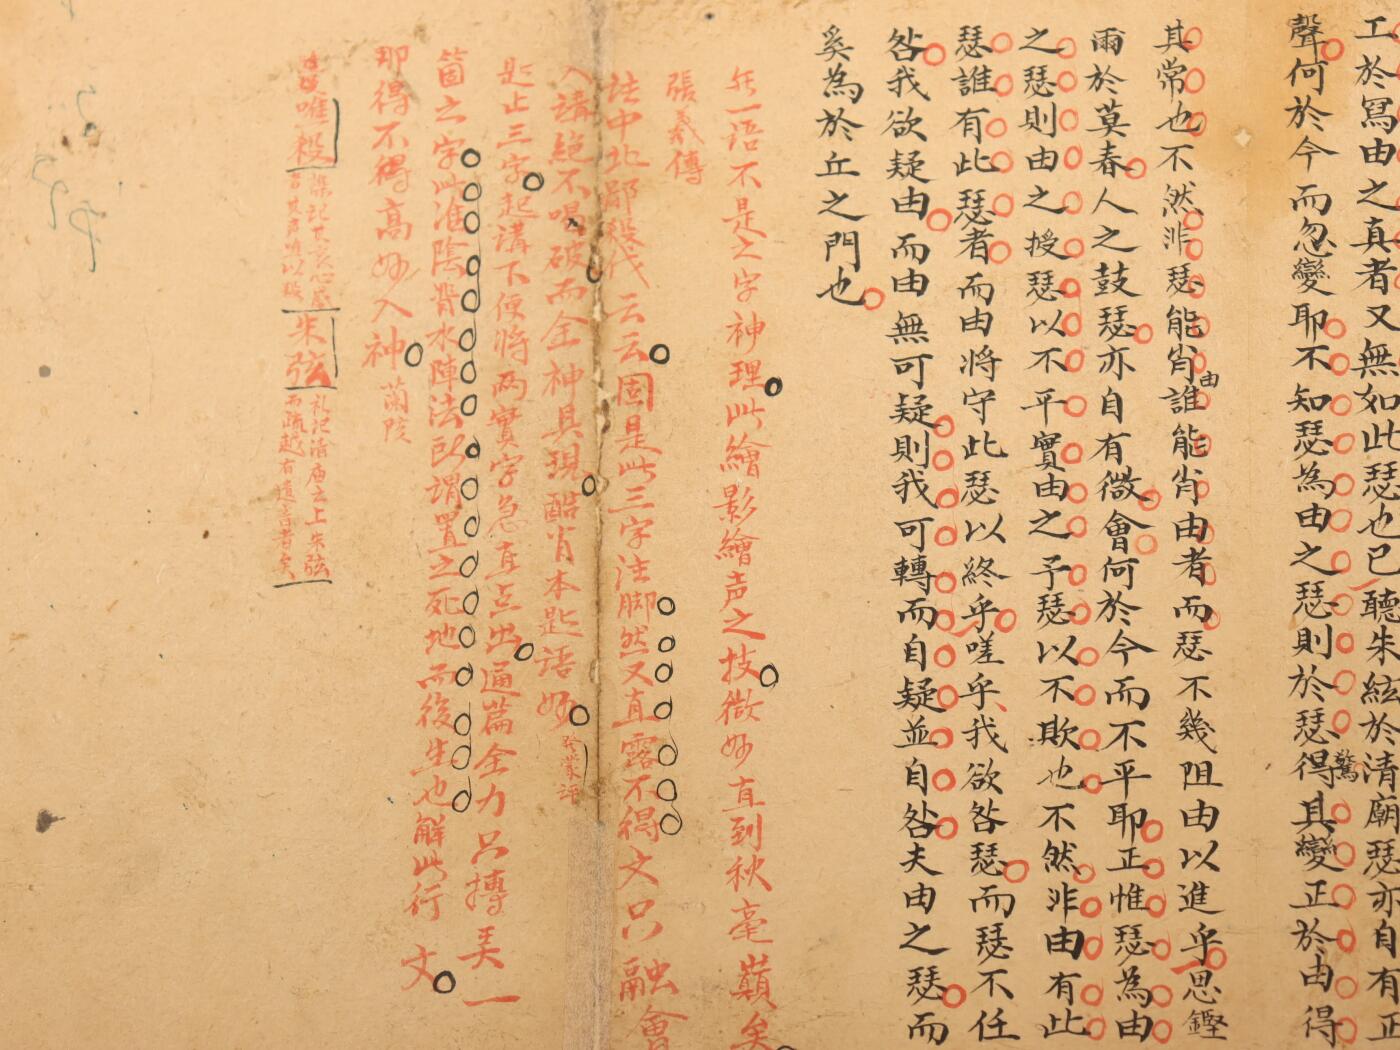 工於寫由之真者又無如此瑟也已聽朱絃於清廟瑟亦自有正
聲何於今而忽變耶不知瑟為由之瑟則於瑟得其變正於由得
驚
其常也不然非瑟能肖誰能肖由者而瑟不幾阻由以進乎思鏗
由
爾於莫春人之鼓瑟亦自有微會何於今而不平耶正惟瑟為由
之瑟則由之授瑟以不平實由之予瑟以不欺也不然非由有此
瑟誰有此瑟者而由將守此瑟以終乎嗟乎我欲咎瑟而瑟不任
咎我欲疑由而由無可疑則我可轉而自疑並自咎夫由之瑟而
奚為於丘之門也
一語不是之字神理此繪影繪声之技微妙直到秋毫巔矣
張義傳
中北鄙殺伐云云固是此三字注脚然又直露不得文只融會
入講絕不唱破而全神具現酷肖本題語妙
評
題止三字起講下便將兩實字急直点出通篇全力只摶美一
箇之字此准陰背水陣法所謂置之死地而後生也解此行文
那得不得高妙入神 蘭陔
唯殺
朱弦 礼記清庙之上朱弦
而疏越有遺音者矣